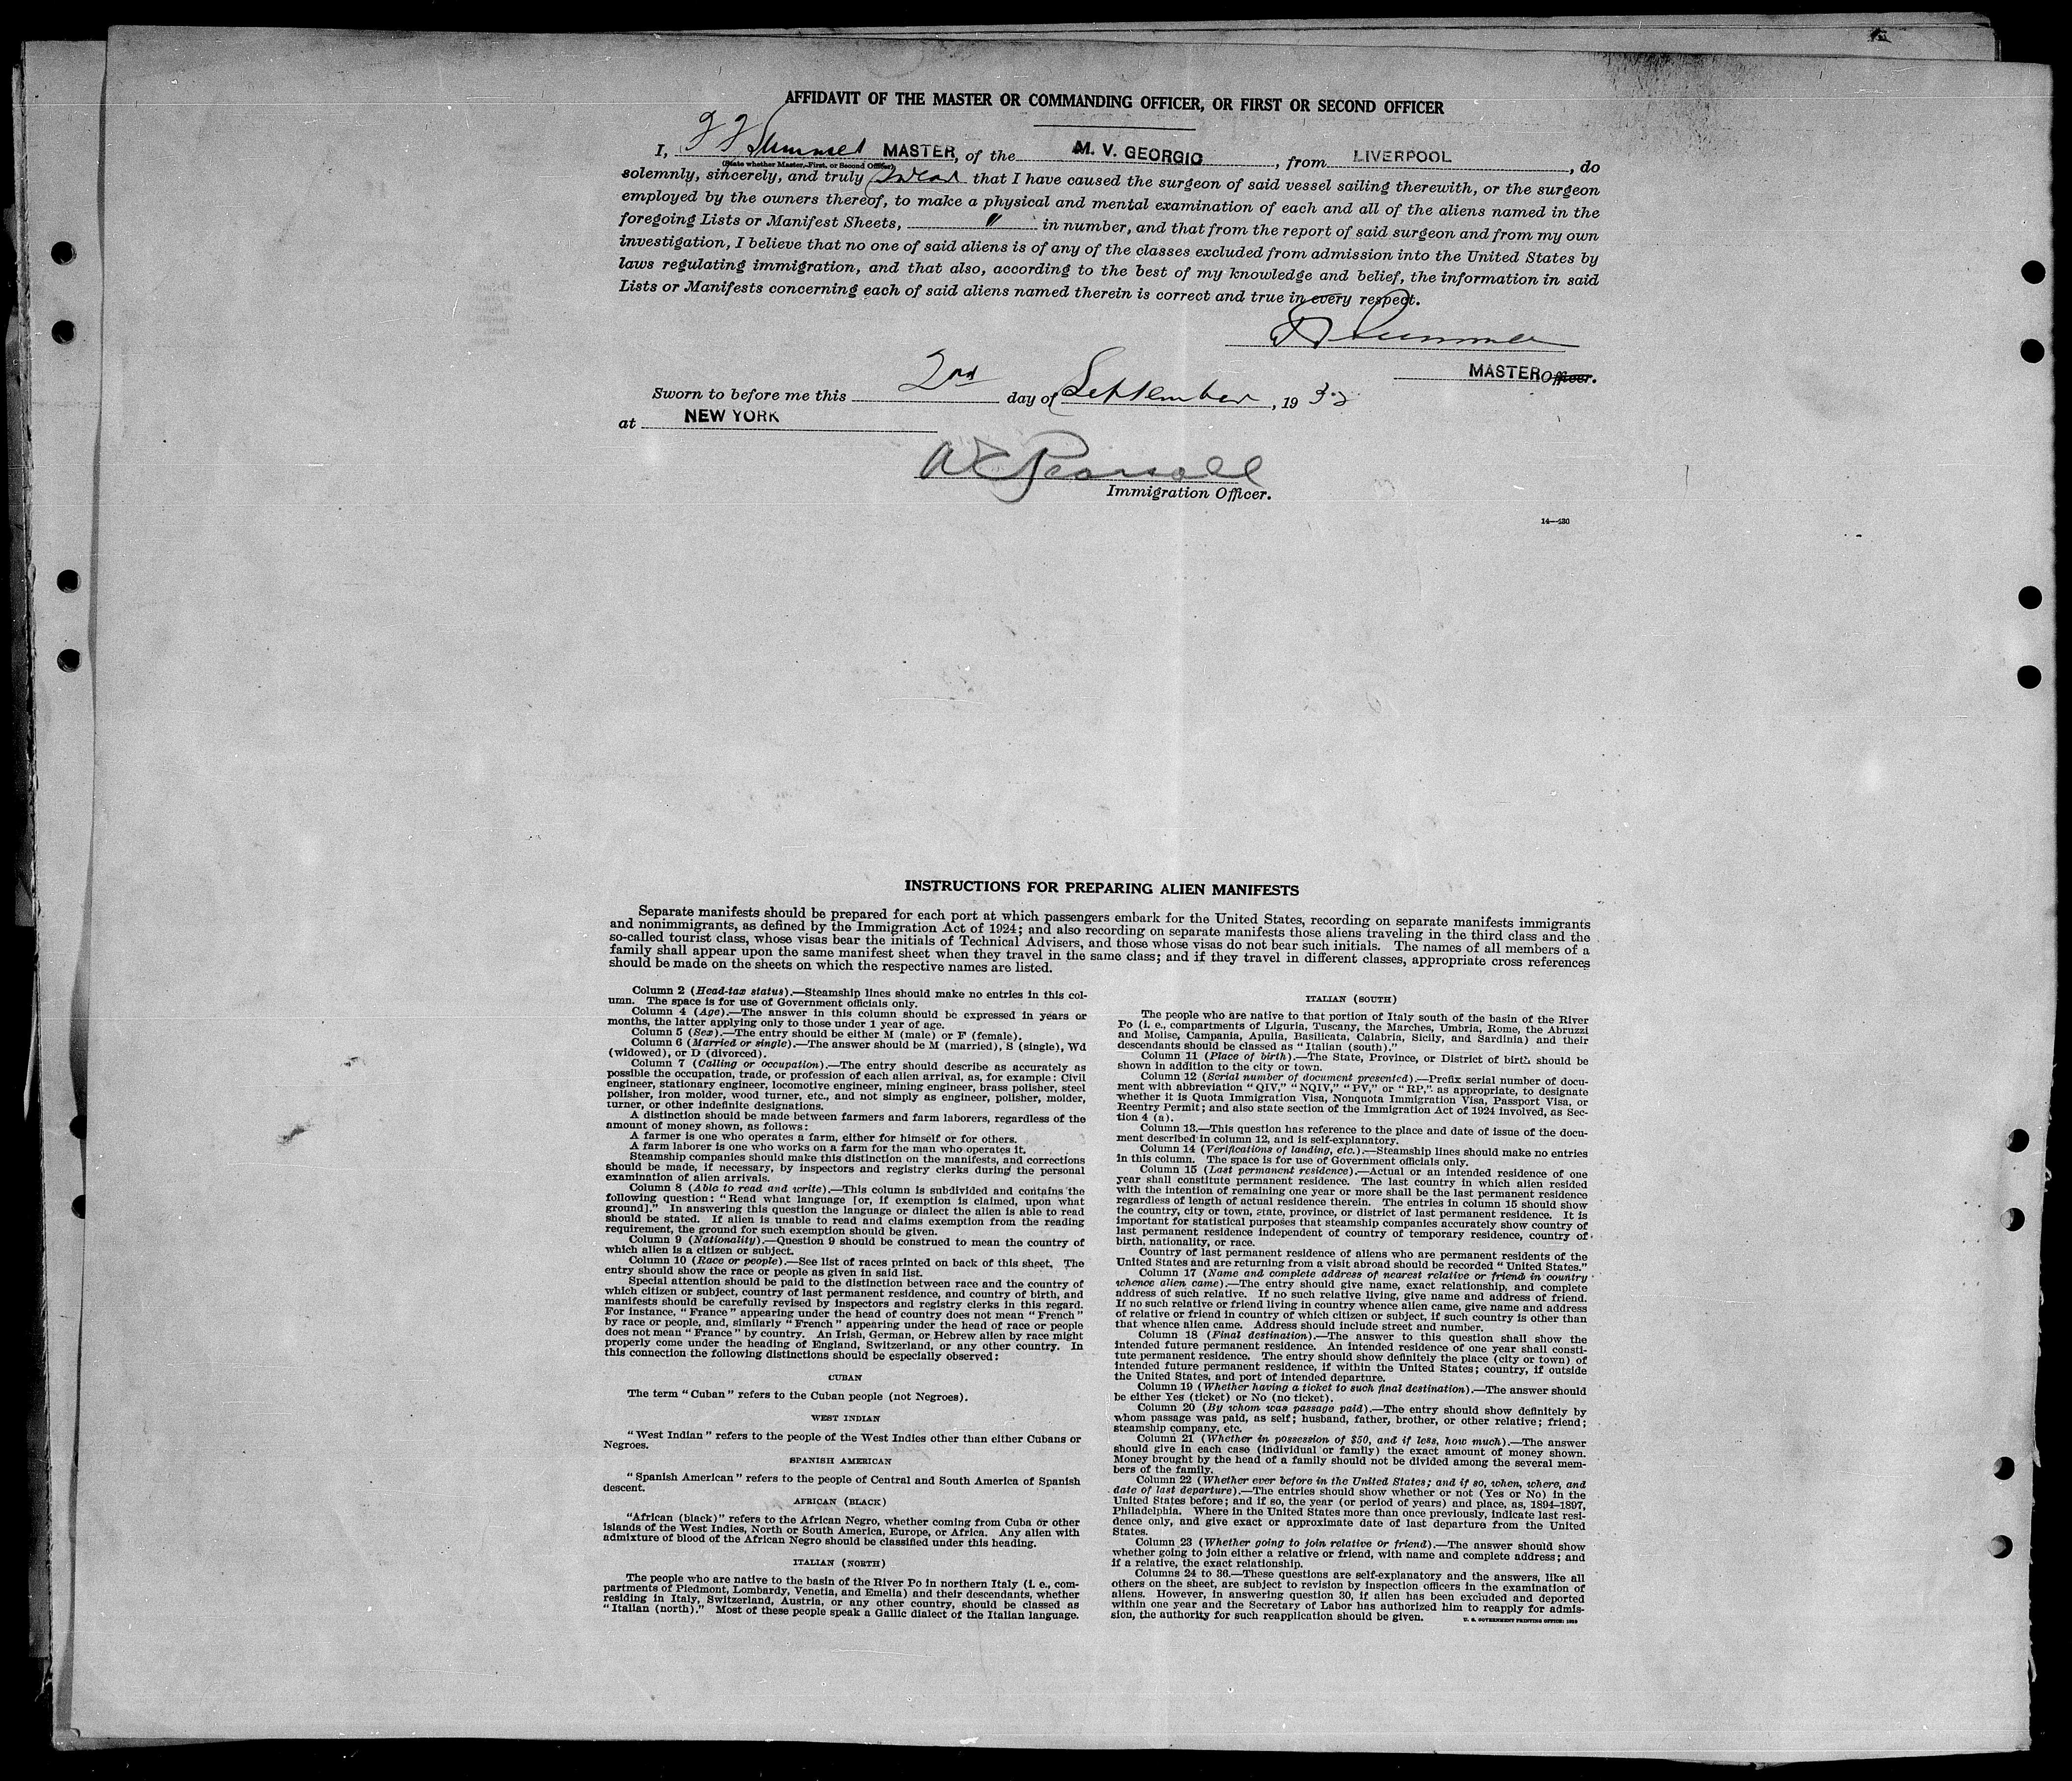 AFFIDAVIT OF THE MASTER OR COMMANDING OFFICER, OR FIRST OR SECOND OFFICER
I, MASTER, of the M. V. GEORGIC, from LIVERPOOL, do
(State whether Master, First, or Second Officer)
solemnly, sincerely, and truly swear that I have caused the surgeon of said vessel sailing therewith, or the surgeon
employed by the owners thereof, to make a physical and mental examination of each and all of the aliens named in the
foregoing Lists or Manifest Sheets, in number, and that from the report of said surgeon and from my own
investigation, I believe that no one of said aliens is of any of the classes excluded from admission into the United States by
laws regulating immigration, and that also, according to the best of my knowledge and belief, the information in said
Lists or Manifests concerning each of said aliens named therein is correct and true in every respect.
MASTER Officer.
Sworn to before me this 2nd day of September, 1932
at NEW YORK
Immigration Officer.
14—430
INSTRUCTIONS FOR PREPARING ALIEN MANIFESTS
Separate manifests should be prepared for each port at which passengers embark for the United States, recording on separate manifests immigrants
and nonimmigrants, as defined by the Immigration Act of 1924; and also recording on separate manifests those aliens traveling in the third class and the
so-called tourist class, whose visas bear the initials of Technical Advisers, and those whose visas do not bear such initials. The names of all members of a
family shall appear upon the same manifest sheet when they travel in the same class; and if they travel in different classes, appropriate cross references
should be made on the sheets on which the respective names are listed.
Column 2 (Head-tax status).—Steamship lines should make no entries in this col-
umn. The space is for use of Government officials only.
Column 4 (Age).—The answer in this column should be expressed in years or
months, the latter applying only to those under 1 year of age.
Column 5 (Sex).—The entry should be either M (male) or F (female).
Column 6 (Married or single).—The answer should be M (married), S (single), Wd
(widowed), or D (divorced).
Column 7 (Calling or occupation).—The entry should describe as accurately as
possible the occupation, trade, or profession of each alien arrival, as, for example: Civil
engineer, stationary engineer, locomotive engineer, mining engineer, brass polisher, steel
polisher, iron molder, wood turner, etc., and not simply as engineer, polisher, molder,
turner, or other indefinite designations.
A distinction should be made between farmers and farm laborers, regardless of the
amount of money shown, as follows:
A farmer is one who operates a farm, either for himself or for others.
A farm laborer is one who works on a farm for the man who operates it.
Steamship companies should make this distinction on the manifests, and corrections
should be made, if necessary, by inspectors and registry clerks during the personal
examination of alien arrivals.
Column 8 (Able to read and write).—This column is subdivided and contains the
following question: "Read what language [or, if exemption is claimed, upon what
ground]." In answering this question the language or dialect the alien is able to read
should be stated. If alien is unable to read and claims exemption from the reading
requirement, the ground for such exemption should be given.
Column 9 (Nationality).—Question 9 should be construed to mean the country of
which alien is a citizen or subject.
Column 10 (Race or people).—See list of races printed on back of this sheet. The
entry should show the race or people as given in said list.
Special attention should be paid to the distinction between race and the country of
which citizen or subject, country of last permanent residence, and country of birth, and
manifests should be carefully revised by inspectors and registry clerks in this regard.
For instance, "France" appearing under the head of country does not mean "French"
by race or people, and, similarly "French" appearing under the head of race or people
does not mean "France" by country. An Irish, German, or Hebrew alien by race might
properly come under the heading of England, Switzerland, or any other country. In
this connection the following distinctions should be especially observed:
CUBAN
The term "Cuban" refers to the Cuban people (not Negroes).
WEST INDIAN
"West Indian" refers to the people of the West Indies other than either Cubans or
Negroes.
SPANISH AMERICAN
"Spanish American" refers to the people of Central and South America of Spanish
descent.
AFRICAN (BLACK)
"African (black)" refers to the African Negro, whether coming from Cuba or other
islands of the West Indies, North or South America, Europe, or Africa. Any alien with
admixture of blood of the African Negro should be classified under this heading.
ITALIAN (NORTH)
The people who are native to the basin of the River Po in northern Italy (i. e., com-
partments of Piedmont, Lombardy, Venetia, and Emelia) and their descendants, whether
residing in Italy, Switzerland, Austria, or any other country, should be classed as
"Italian (north)." Most of these people speak a Gallic dialect of the Italian language.
ITALIAN (SOUTH)
The people who are native to that portion of Italy south of the basin of the River
Po (i. e., compartments of Liguria, Tuscany, the Marches, Umbria, Rome, the Abruzzi
and Molise, Campania, Apulia, Basilicata, Calabria, Sicily, and Sardinia) and their
descendants should be classed as "Italian (south)."
Column 11 (Place of birth).—The State, Province, or District of birth should be
shown in addition to the city or town.
Column 12 (Serial number of document presented).—Prefix serial number of docu-
ment with abbreviation "QIV," "NQIV," "PV," or "RP," as appropriate, to designate
whether it is Quota Immigration Visa, Nonquota Immigration Visa, Passport Visa, or
Reentry Permit; and also state section of the Immigration Act of 1924 involved, as Sec-
tion 4 (a).
Column 13.—This question has reference to the place and date of issue of the docu-
ment described in column 12, and is self-explanatory.
Column 14 (Verifications of landing, etc.).—Steamship lines should make no entries
in this column. The space is for use of Government officials only.
Column 15 (Last permanent residence).—Actual or an intended residence of one
year shall constitute permanent residence. The last country in which alien resided
with the intention of remaining one year or more shall be the last permanent residence
regardless of length of actual residence therein. The entries in column 15 should show
the country, city or town, state, province, or district of last permanent residence. It is
important for statistical purposes that steamship companies accurately show country of
last permanent residence independent of country of temporary residence, country of
birth, nationality, or race.
Country of last permanent residence of aliens who are permanent residents of the
United States and are returning from a visit abroad should be recorded "United States."
Column 17 (Name and complete address of nearest relative or friend in country
whence alien came).—The entry should give name, exact relationship, and complete
address of such relative. If no such relative living, give name and address of friend.
If no such relative or friend living in country whence alien came, give name and address
of relative or friend in country of which citizen or subject, if such country is other than
that whence alien came. Address should include street and number.
Column 18 (Final destination).—The answer to this question shall show the
intended future permanent residence. An intended residence of one year shall consti-
tute permanent residence. The entry should show definitely the place (city or town) of
intended future permanent residence, if within the United States; country, if outside
the United States, and port of intended departure.
Column 19 (Whether having a ticket to such final destination).—The answer should
be either Yes (ticket) or No (no ticket).
Column 20 (By whom was passage paid).—The entry should show definitely by
whom passage was paid, as self; husband, father, brother, or other relative; friend;
steamship company, etc.
Column 21 (Whether in possession of $50, and if less, how much).—The answer
should give in each case (individual or family) the exact amount of money shown.
Money brought by the head of a family should not be divided among the several mem-
bers of the family.
Column 22 (Whether ever before in the United States; and if so, when, where, and
date of last departure).—The entries should show whether or not (Yes or No) in the
United States before; and if so, the year (or period of years) and place, as, 1894–1897,
Philadelphia. Where in the United States more than once previously, indicate last resi-
dence only, and give exact or approximate date of last departure from the United
States.
Column 23 (Whether going to join relative or friend).—The answer should show
whether going to join either a relative or friend, with name and complete address; and
if a relative, the exact relationship.
Columns 24 to 36.—These questions are self-explanatory and the answers, like all
others on the sheet, are subject to revision by inspection officers in the examination of
aliens. However, in answering question 30, if alien has been excluded and deported
within one year and the Secretary of Labor has authorized him to reapply for admis-
sion, the authority for such reapplication should be given.
U. S. GOVERNMENT PRINTING OFFICE: